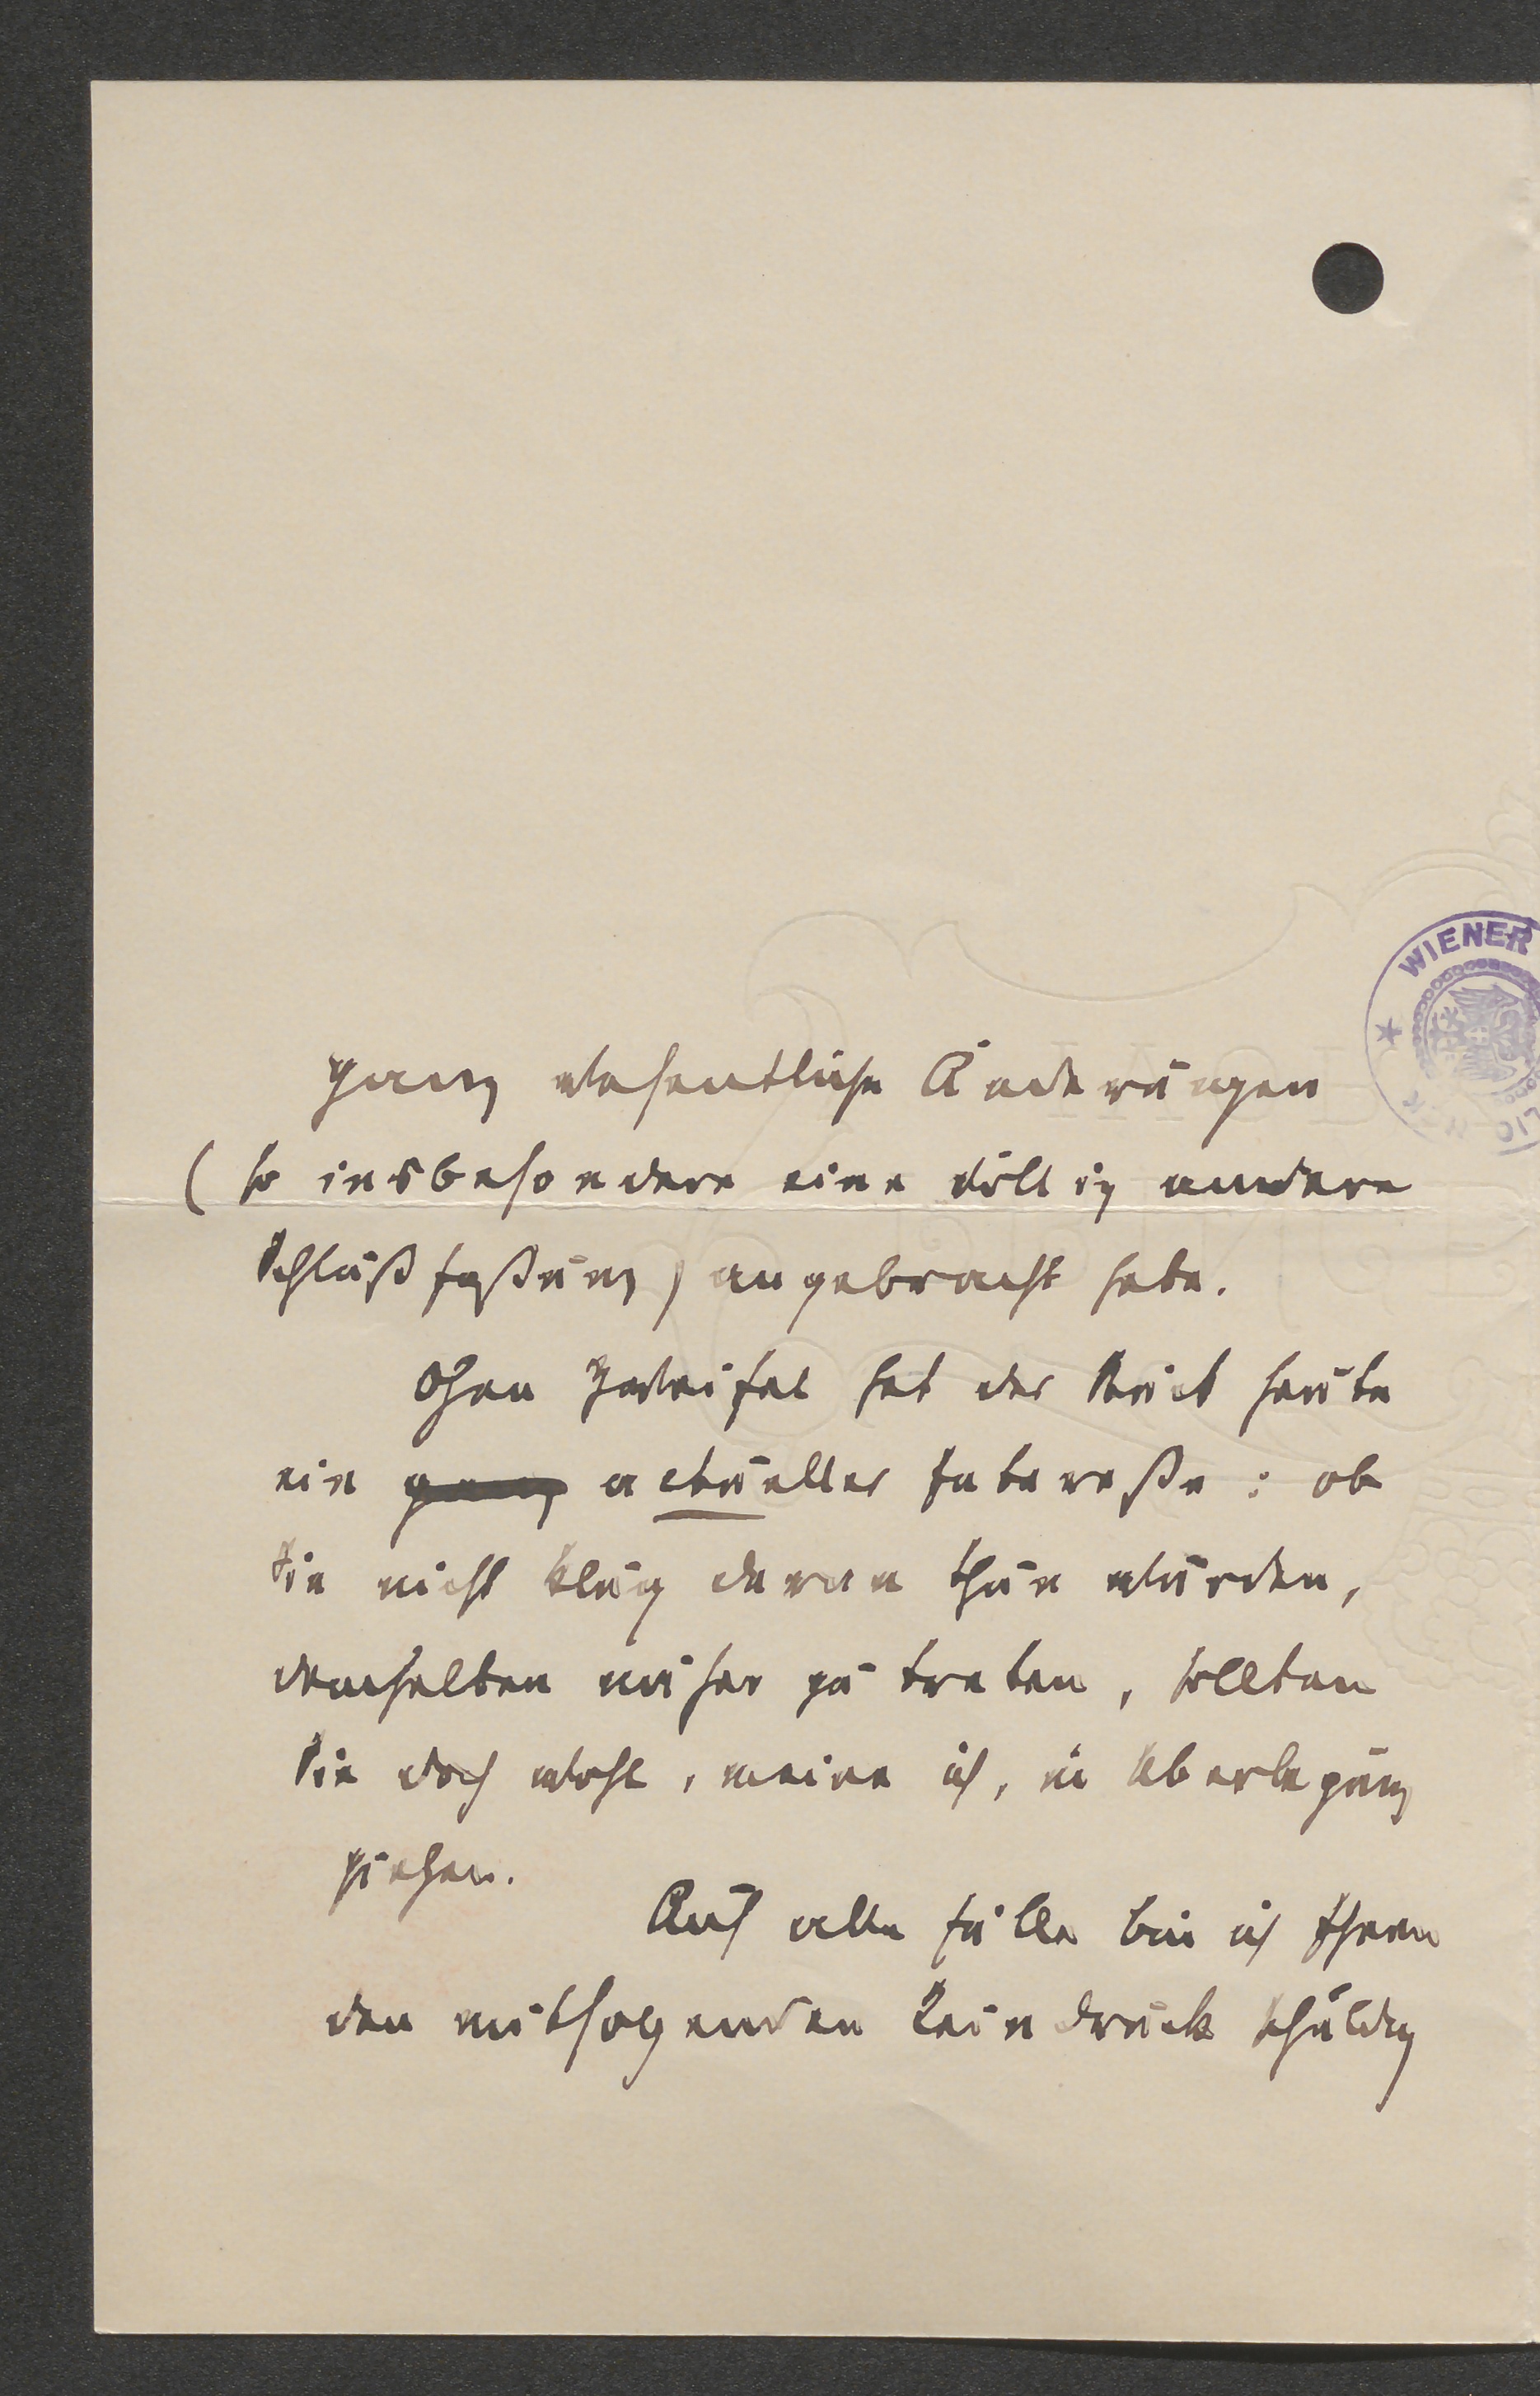 WIENER
ganz wesentliche Änderungen
(so insbesondere eine völlig andere
Schlußfaßung) angebracht habe.
Ohne Zweifel hat das Stück heute
ein ganz actuelles Intereße: ob
Sie nicht klug daran thun würden,
demselben näher zu treten, sollten
Sie doch wohl, meine ich, in Überlegung
ziehen.
Auf alle Fälle bin ich Ihnen
den mitfolgenden Reindruck schuldig